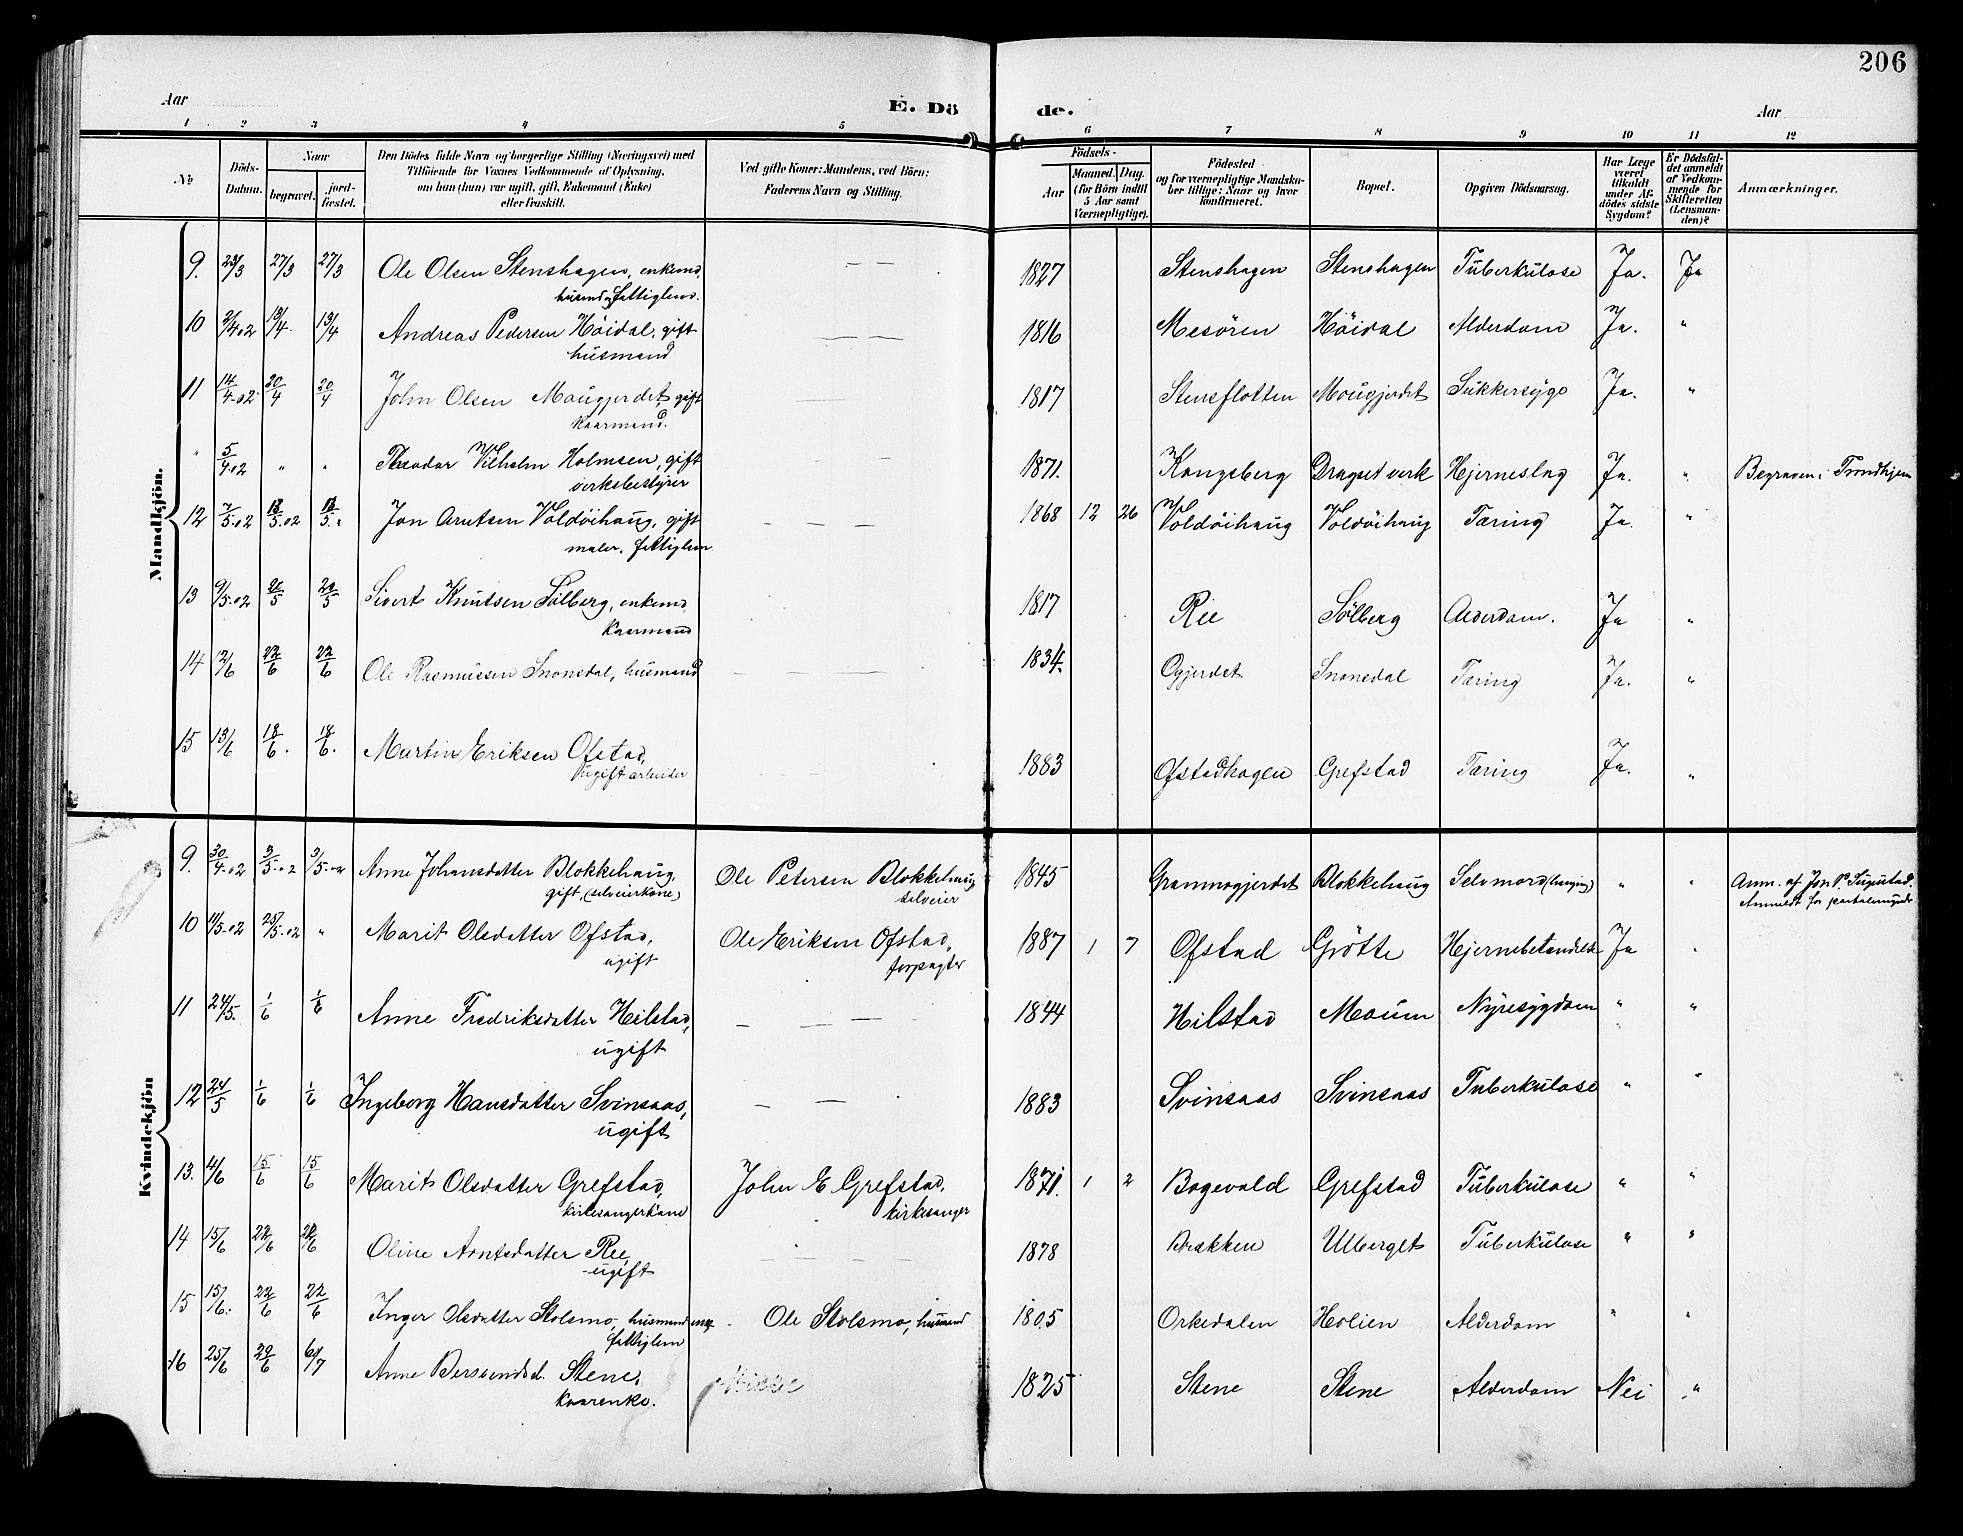 206
Aar E. Dö de. Aar
1 2 3 4 5 6 7 8 9 10 11 12
No Döds-Datum. Naar begravet. jord-fæstet. Den Dödes fulde Navn og borgerlige Stilling (Næringsvei) med Tilföiende for Voxnes Vedkommende af Oplysning, om hun (hun) var ugift, gift, Enkemand (Enke) eller fraskilt. Ved gifte Koner: Mandens, ved Börn: Faderens Navn og Stilling. Födsels- Aar Maaned. Dag. (for Börn indtil 5 Aar samt Værnepligtige). Födested og for værnepligtige Mandskaber tillige: Naar og hvor konfirmeret. Bopæl. Opgiven Dödsaarsag. Har Læge været tilkaldt under Afdödes sidste Sygdom? Er Dödsfaldet anmeldt af Vedkommende for Skifteretten (Lensmanden)? Anmærkninger.
Mandkjön.
9. 23/3 27/3 27/3 Ole Olsen Stenshagen, enkemd — — 1827 Stenshagen Stenshagen Tuberkulose Ja. Ja
husmd og fattiglem.
10 2/4.02 13/4. 13/4 Andreas Pedersen Höidal, gift — — 1816 Mesören Höidal Alderdom Ja. "
husmand
11 14/4.02 20/4 20/4 John Olsen Mougjerdet, gift — — 1817 Stensflotten Mougjerdet Sukkersyge Ja. "
Kaarmand.
" 5/4.02 " " Theodor Vilhelm Holmsen, gift — — 1871. Kongsberg Dragset verk Hjerneslag Ja. " Begraven i Trondhjem
verksbestyrer
12 7/5.02 18/5.02 18/5. " Jon Arntsen Voldöihaug, gift — — 1868 12 26 Voldöihaug Voldöihaug Tæring Ja. "
maler. fattiglem
13 9/5.02 20/5 20/5 Sivert Knutsen Sölberg, enkemd 1817 Ree Sölberg Alderdom. Ja "
Kaarmand
14 12/6 22/6 22/6 Ole Rasmussen Snonsdal, husmand — — — 1834. Ogjerdet Snonedal Tæring Ja. "
15 13/6 18/6. 18/6. Martin Eriksen Ofstad, 1883 Ofstadhagen Grefstad Tæring Ja. "
ugift arbeider
Kvindekjön
9. 30/4.02 3/5.02 3/5.02 Anne Johansdatter Blokkehaug, Ole Petersen Blokkehaug 1845 Gramnogjerdet Blokkehaug Selvmord (hænging) " " Anm. af Jon P. Sugustad.
gift, (selveierkone) selveier Anmeldt for
10 11/5.02 25/5.02 " Marit Olsdatter Ofstad, Ole Eriksen Ofstad, 1887 1 7 Ofstad Grötte Hjernebetændelse Ja "
ugift forpagter
11 24/5. 1/6 1/6 Anne Fredriksdatter Hilstad, — — — 1844 Hilstad Moum Nyresygdom " "
ugift
12 24/5 1/6 1/6 Ingeborg Hansdatter Svinsaas, — — 1883 Svinsaas Svinsaas Tuberkulose " "
ugift
13. 4/6 15/6 15/6 Marit Olsdatter Grefstad, John E Grefstad, 1871. 1 2 Bogevald Grefstad Tuberkulose " "
kirkesangerkone kirkesanger
14 15/6 22/6 22/6 Oline Arntsdatter Ree, — — — 1878 Brækken Ulberget Tuberkulose " "
ugift
15 15/6. 22/6 22/6 Inger Olsdatter Stolsmo, husmandsenke Ole Stolsmo, husmand 1805 Orkedalen Holien Alderdom " "
fattiglem
16 25/6 29/6 6/7 Anne Berssendsd. Stene, 1825 Stene Stene Alderdom Nei "
Kaarenke.